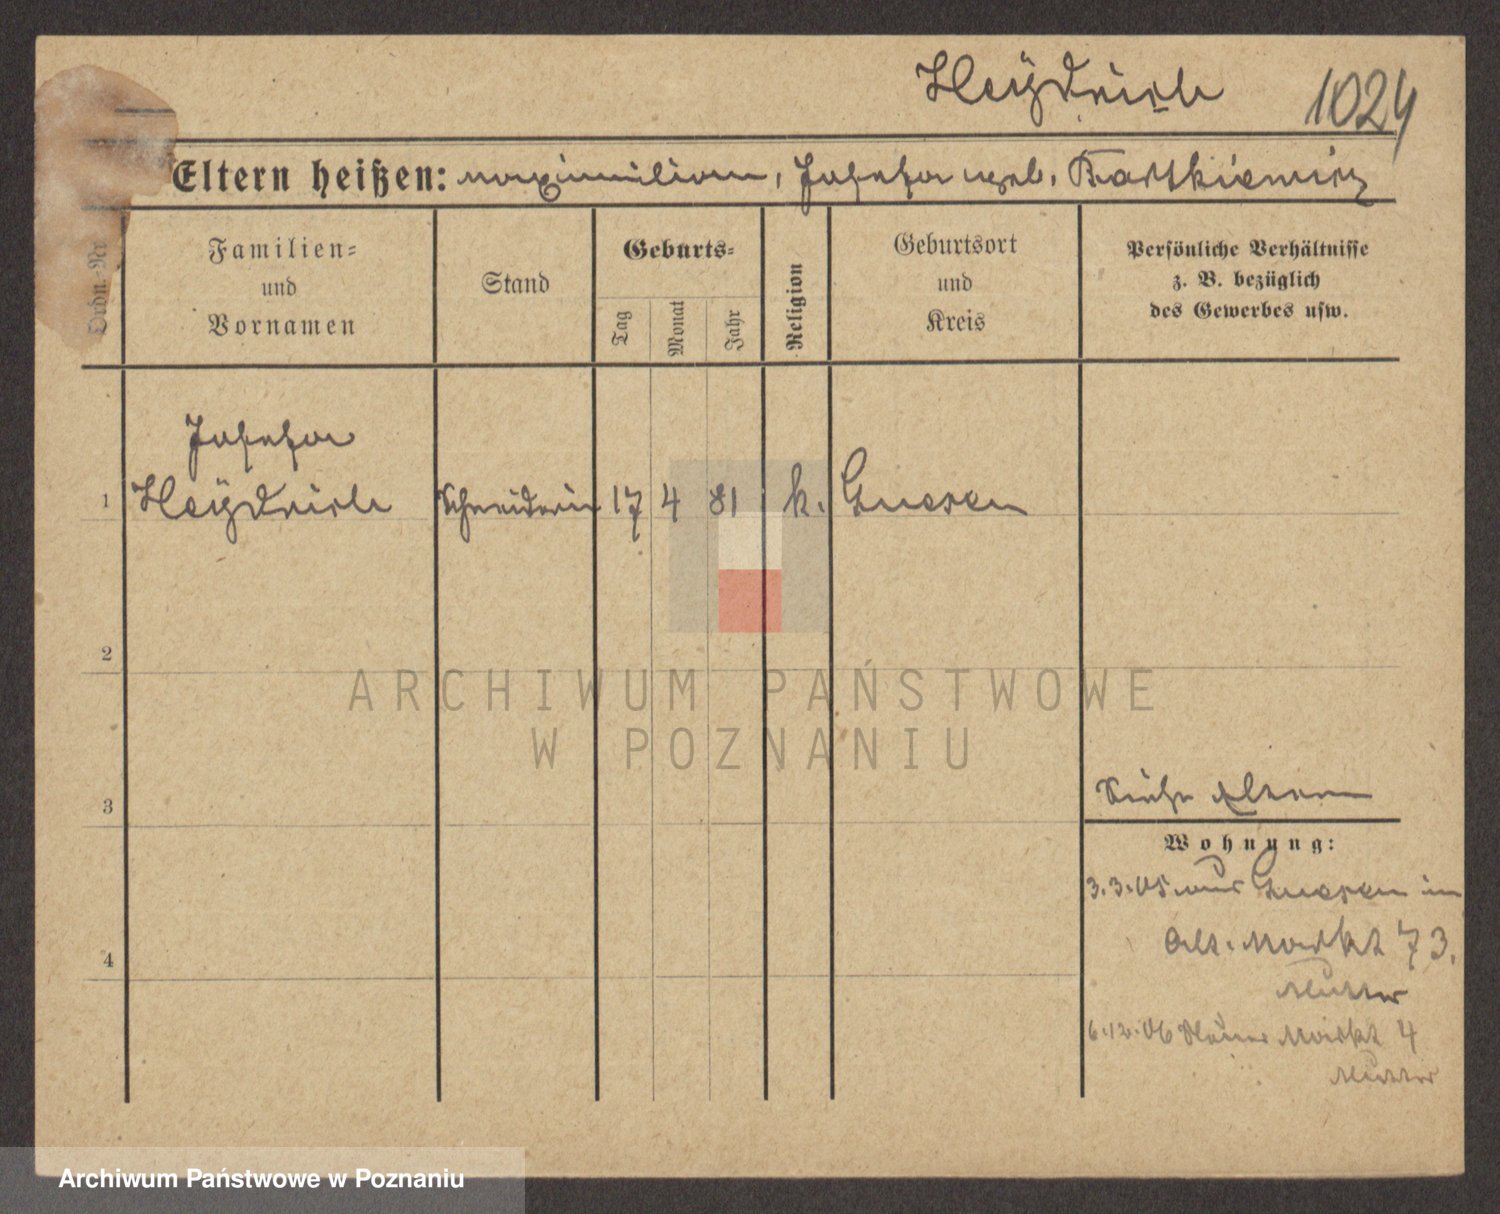 Heÿdrich
1024
Eltern heißen: Maximilian, Josefa geb. Bartkiewicz
Ordn.-Nr.
Familien-
und
Vornamen
Stand
Geburts-
Tag
Monat
Jahr
Religion
Geburtsort
und
Kreis
Persönliche Verhältnisse
z. B. bezüglich
des Gewerbes usw.
Josefa
1 Heÿdrich Schneiderin 17 4 81 k. Gnesen
2
ARCHIWUM PAŃSTWOWE
W POZNANIU
3
Siehe Eltern
Wohnung:
3.3.05 aus Gnesen in
4
Alt. Markt 73.
Mutter
6.12.06 Markt 4
Mutter
Archiwum Państwowe w Poznaniu